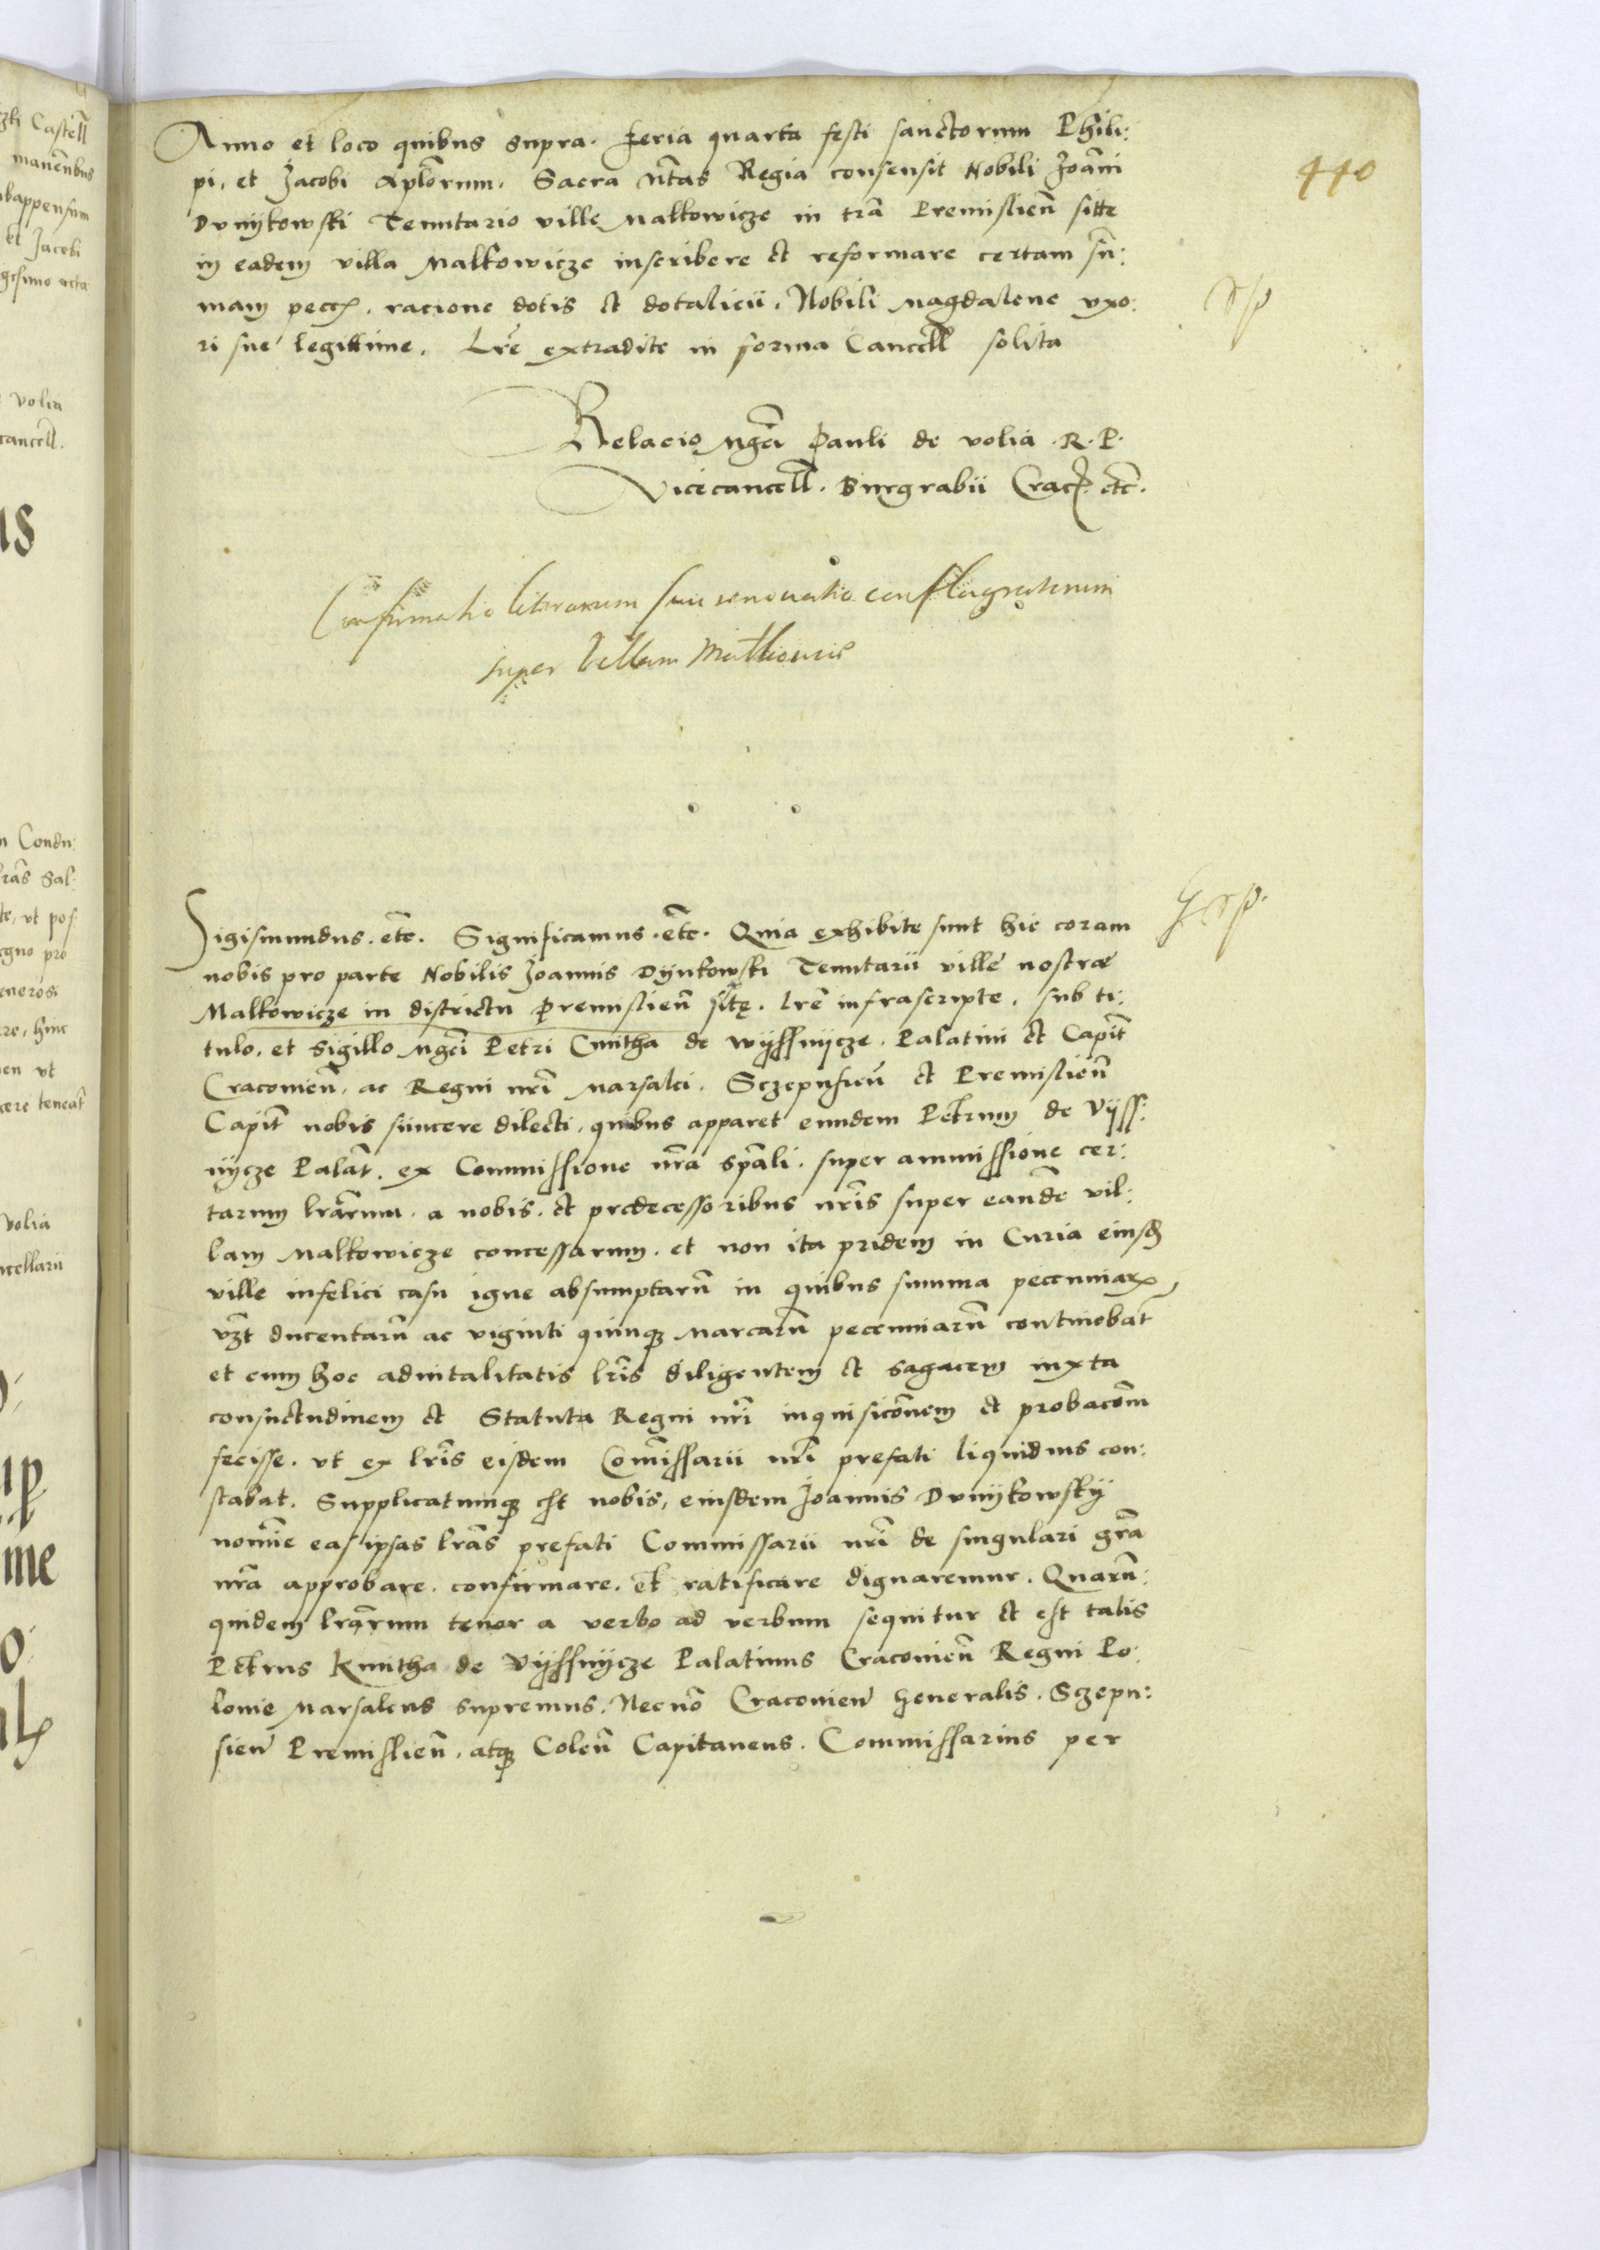 440
Anno et loco quibus supra. feria quarta festi sanctorum Phili:
pi, et Jacobi Aplorum. Sacra Mtas Regia consensit Nobili Joãni
Dvnÿkowski Tenutario ville Malkowicze in trã Premislieñ sitte
in eadem villa Malkowicze inscribere et reformare certam sũ:
mam pecc, racione dotis et dotalicii. Nobili Magdalene vxo:
ri sue legittime. Lrẽ extradite in forma Cancell solita
Relacio Mgci Pauli de volia .R.P.
Vicecancell. Burgrabii Crac etc.
Confirmatio literarum seu renovatio conflagratarum
super Villam Malkowicze
Sigismundus. etc. Significamus. etc. Quia exhibite sunt hic coram
nobis pro parte Nobilis Joannis Dÿnkowski Tenutarii ville nostræ
Malkowicze in districtu Premislieñ sitę. lrẽ infrascripte, sub ti:
tulo, et sigillo Mgci Petri Cmitha de Wÿssnÿcze, Palatini et Capit
Cracovieñ, ac Regni nri Marsalci. Sczepusieñ et Premislieñ
Capit nobis sincere dilecti, quibus apparet eundem Petrum de Vÿss:
nÿcze Palat. ex Commissione nrã spãli, super ammissione cer:
tarum lrarum, a nobis, et predecessoribus nris super eande vil:
lam Malkowicze concessarum, et non ita pridem in Curia eiusd
ville infelici casu igne absumptarũ in quibus summa pecuniar
vzt ducentarũ ac viginti quinq marcarũ pecuniarũ continebat
et cum hoc advitalitatis lris diligentem et sagacem iuxta
consuetudinem et Statuta Regni nri inquisiconem et probacom
fecisse. vt ex lris eisdem Comissarii nri prefati liquidius con:
stabat. Supplicatumq est nobis, eiusdem Joannis Dvnÿkowskÿ
nomine eas ipsas lras prefati Commissarii nri de singulari grã
nrã approbare, confirmare, et ratificare dignaremur. Quarũ:
quidem lrarum tenor a verbo ad verbum sequitur et est talis
Petrus Kmitha de Vÿssnÿcze Palatinus Cracovieñ Regni Po:
lonie Marsalcus supremus, Necnõ Cracovieñ Generalis, Sczepu:
sieñ Premislieñ, atq Coleñ Capitaneus. Commissarius per